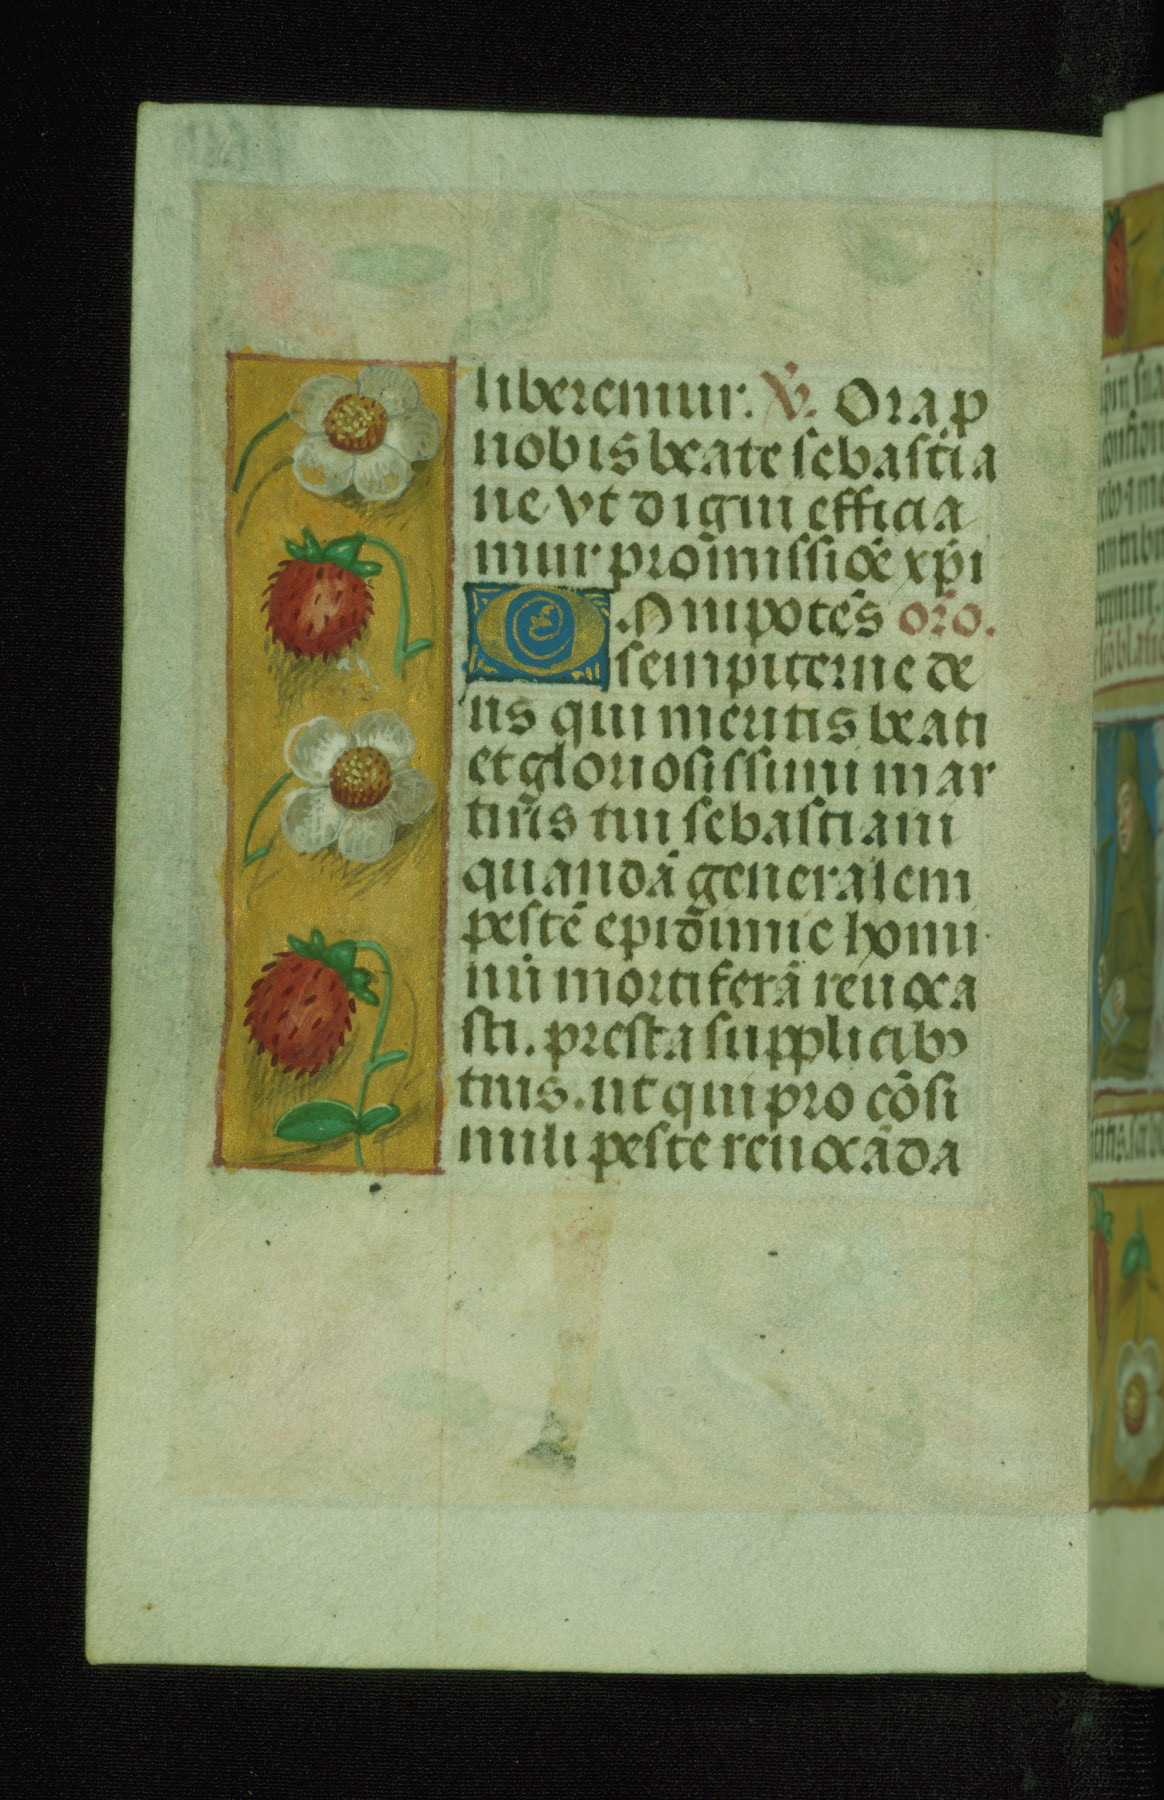 liberemur. V̉. Ora p
nobis beate sebastia
ne vt digni efficia
mur promissiōe xp̄i
O.mnipotēs oro̅.
sempiterne de
us qui meritis beati
et gloriosissimi mar
tir̄is tui sebastiani
quandā generalem
pestē epid̄imie homi
nū mortiferā reuoca
sti. presta supplicibꝰ
tuis. ut qui pro cōsi
mili peste reuocāda